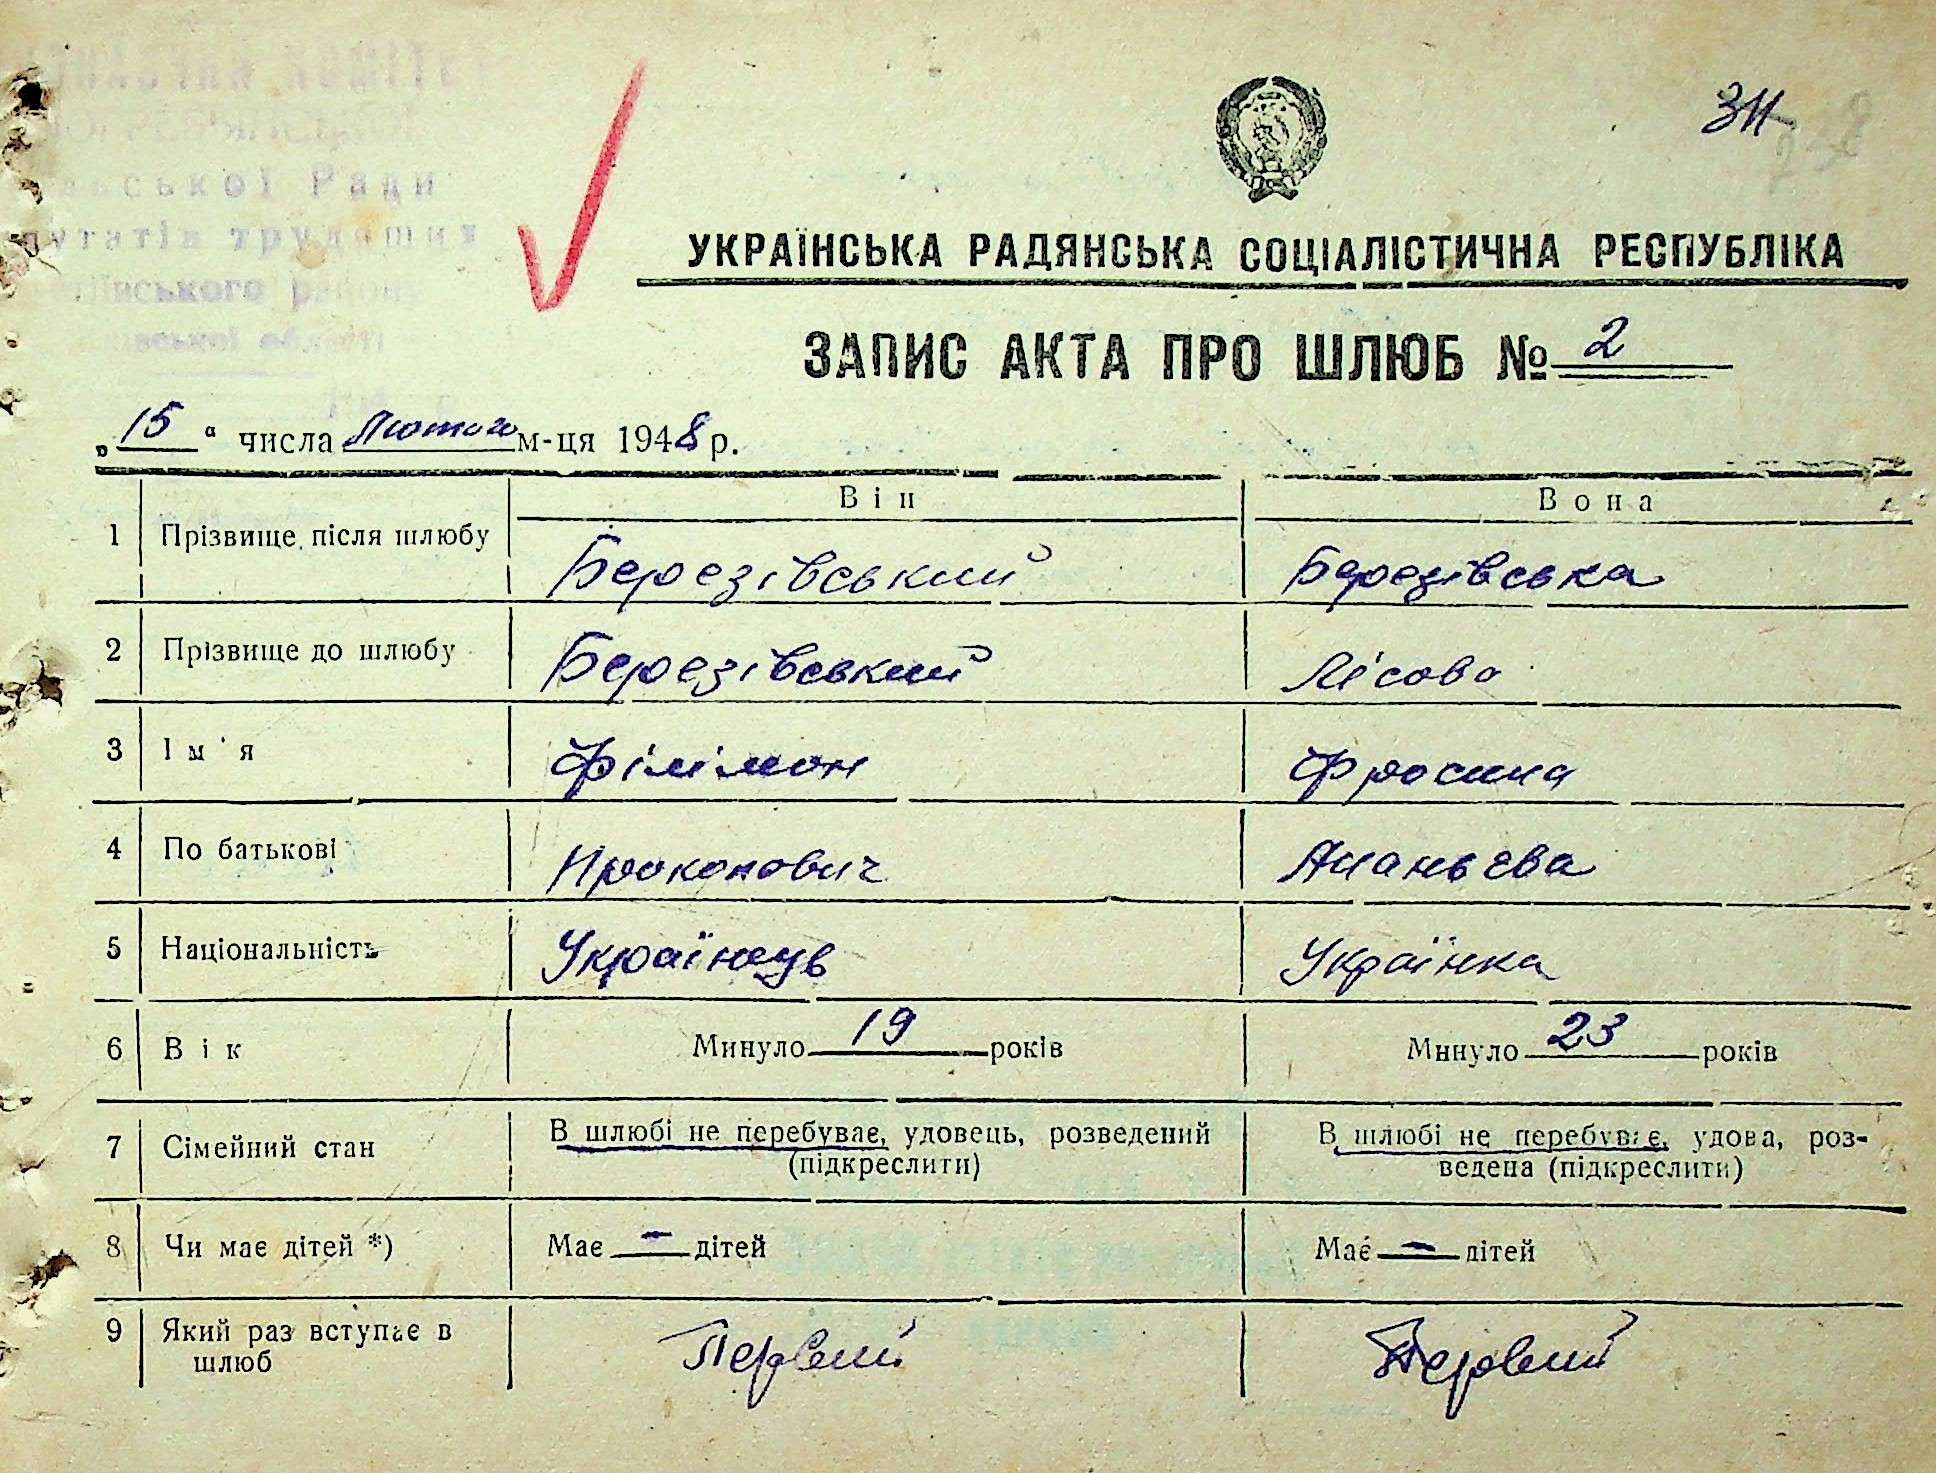 ської Ради
путатів трудящих
ївського району
вської області
311
УКРАЇНСЬКА РАДЯНСЬКА СОЦІАЛІСТИЧНА РЕСПУБЛІКА
ЗАПИС АКТА ПРО ШЛЮБ № 2
„15“ числа Лютого м-ця 1948 р.
Він Вона
1 Прізвище після шлюбу Березівський Березівська
2 Прізвище до шлюбу Березівський Лісова
3 Ім'я Філімон Фросина
4 По батькові Прокопович Ананьєва
5 Національність Українець Українка
6 Вік Минуло 19 років Минуло 23 років
7 Сімейний стан В шлюбі не перебуває, удовець, розведений В шлюбі не перебуває, удова, роз-
(підкреслити) ведена (підкреслити)
8 Чи має дітей *) Має — дітей Має — дітей
9 Який раз вступає в Первий Первий
шлюб